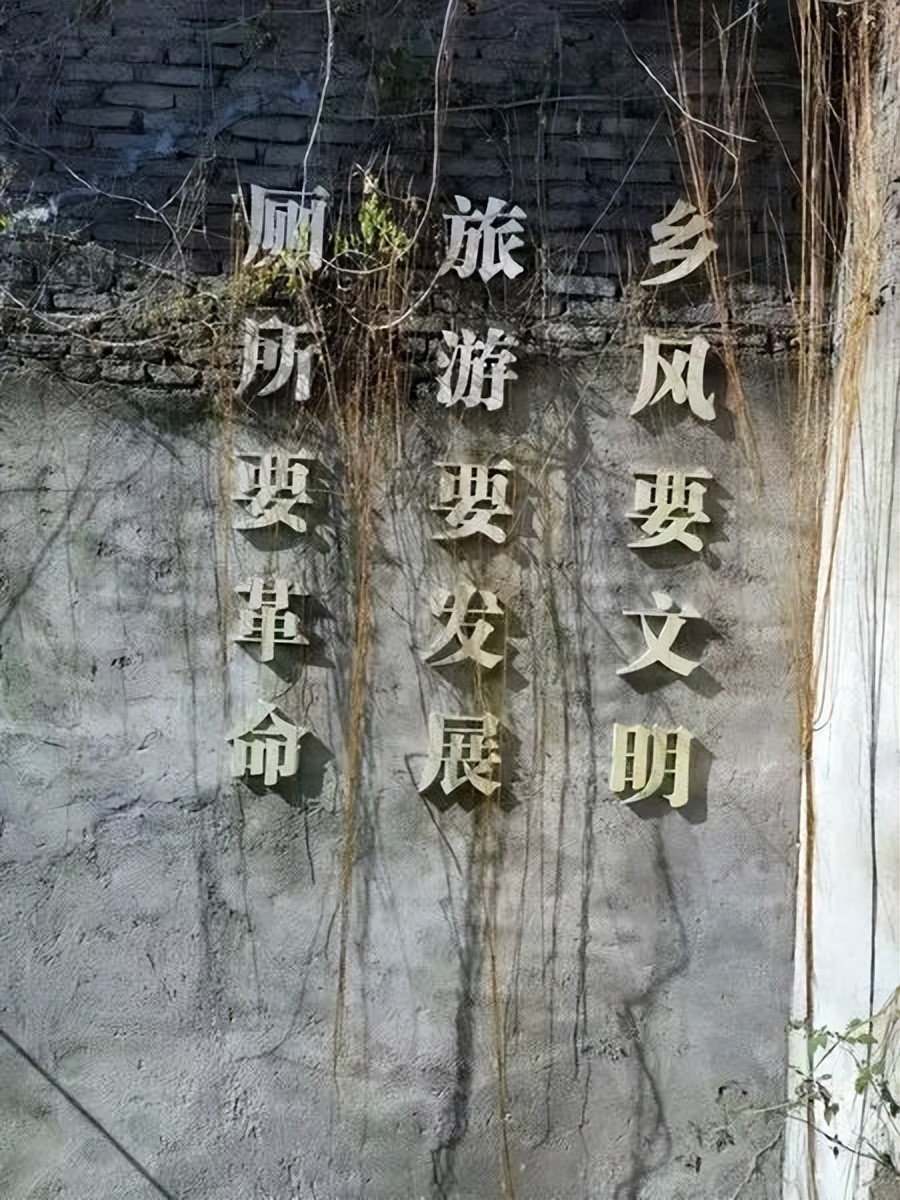 乡风要文明
旅游要发展
厕所要革命